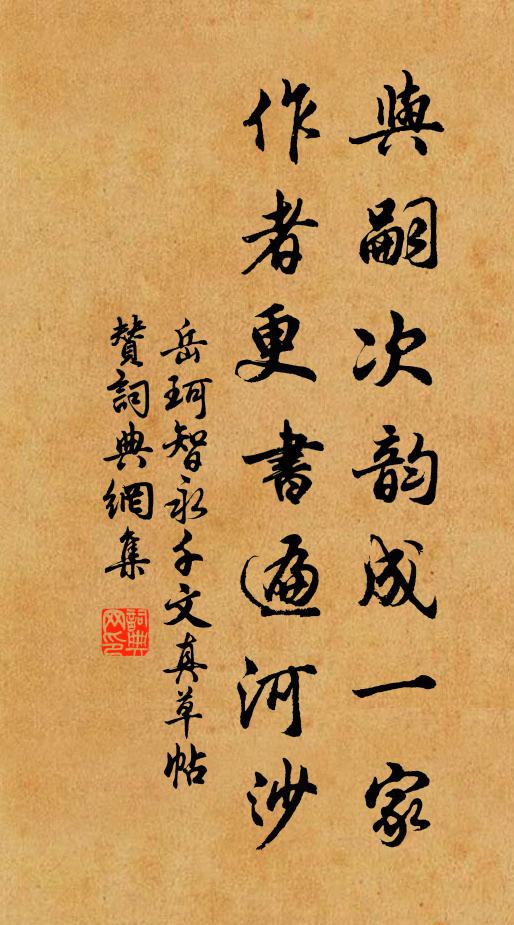 與嗣次韵成一家
作者更書遍河沙
岳珂智永千文真草帖
贊詞典網集
詞典
网印